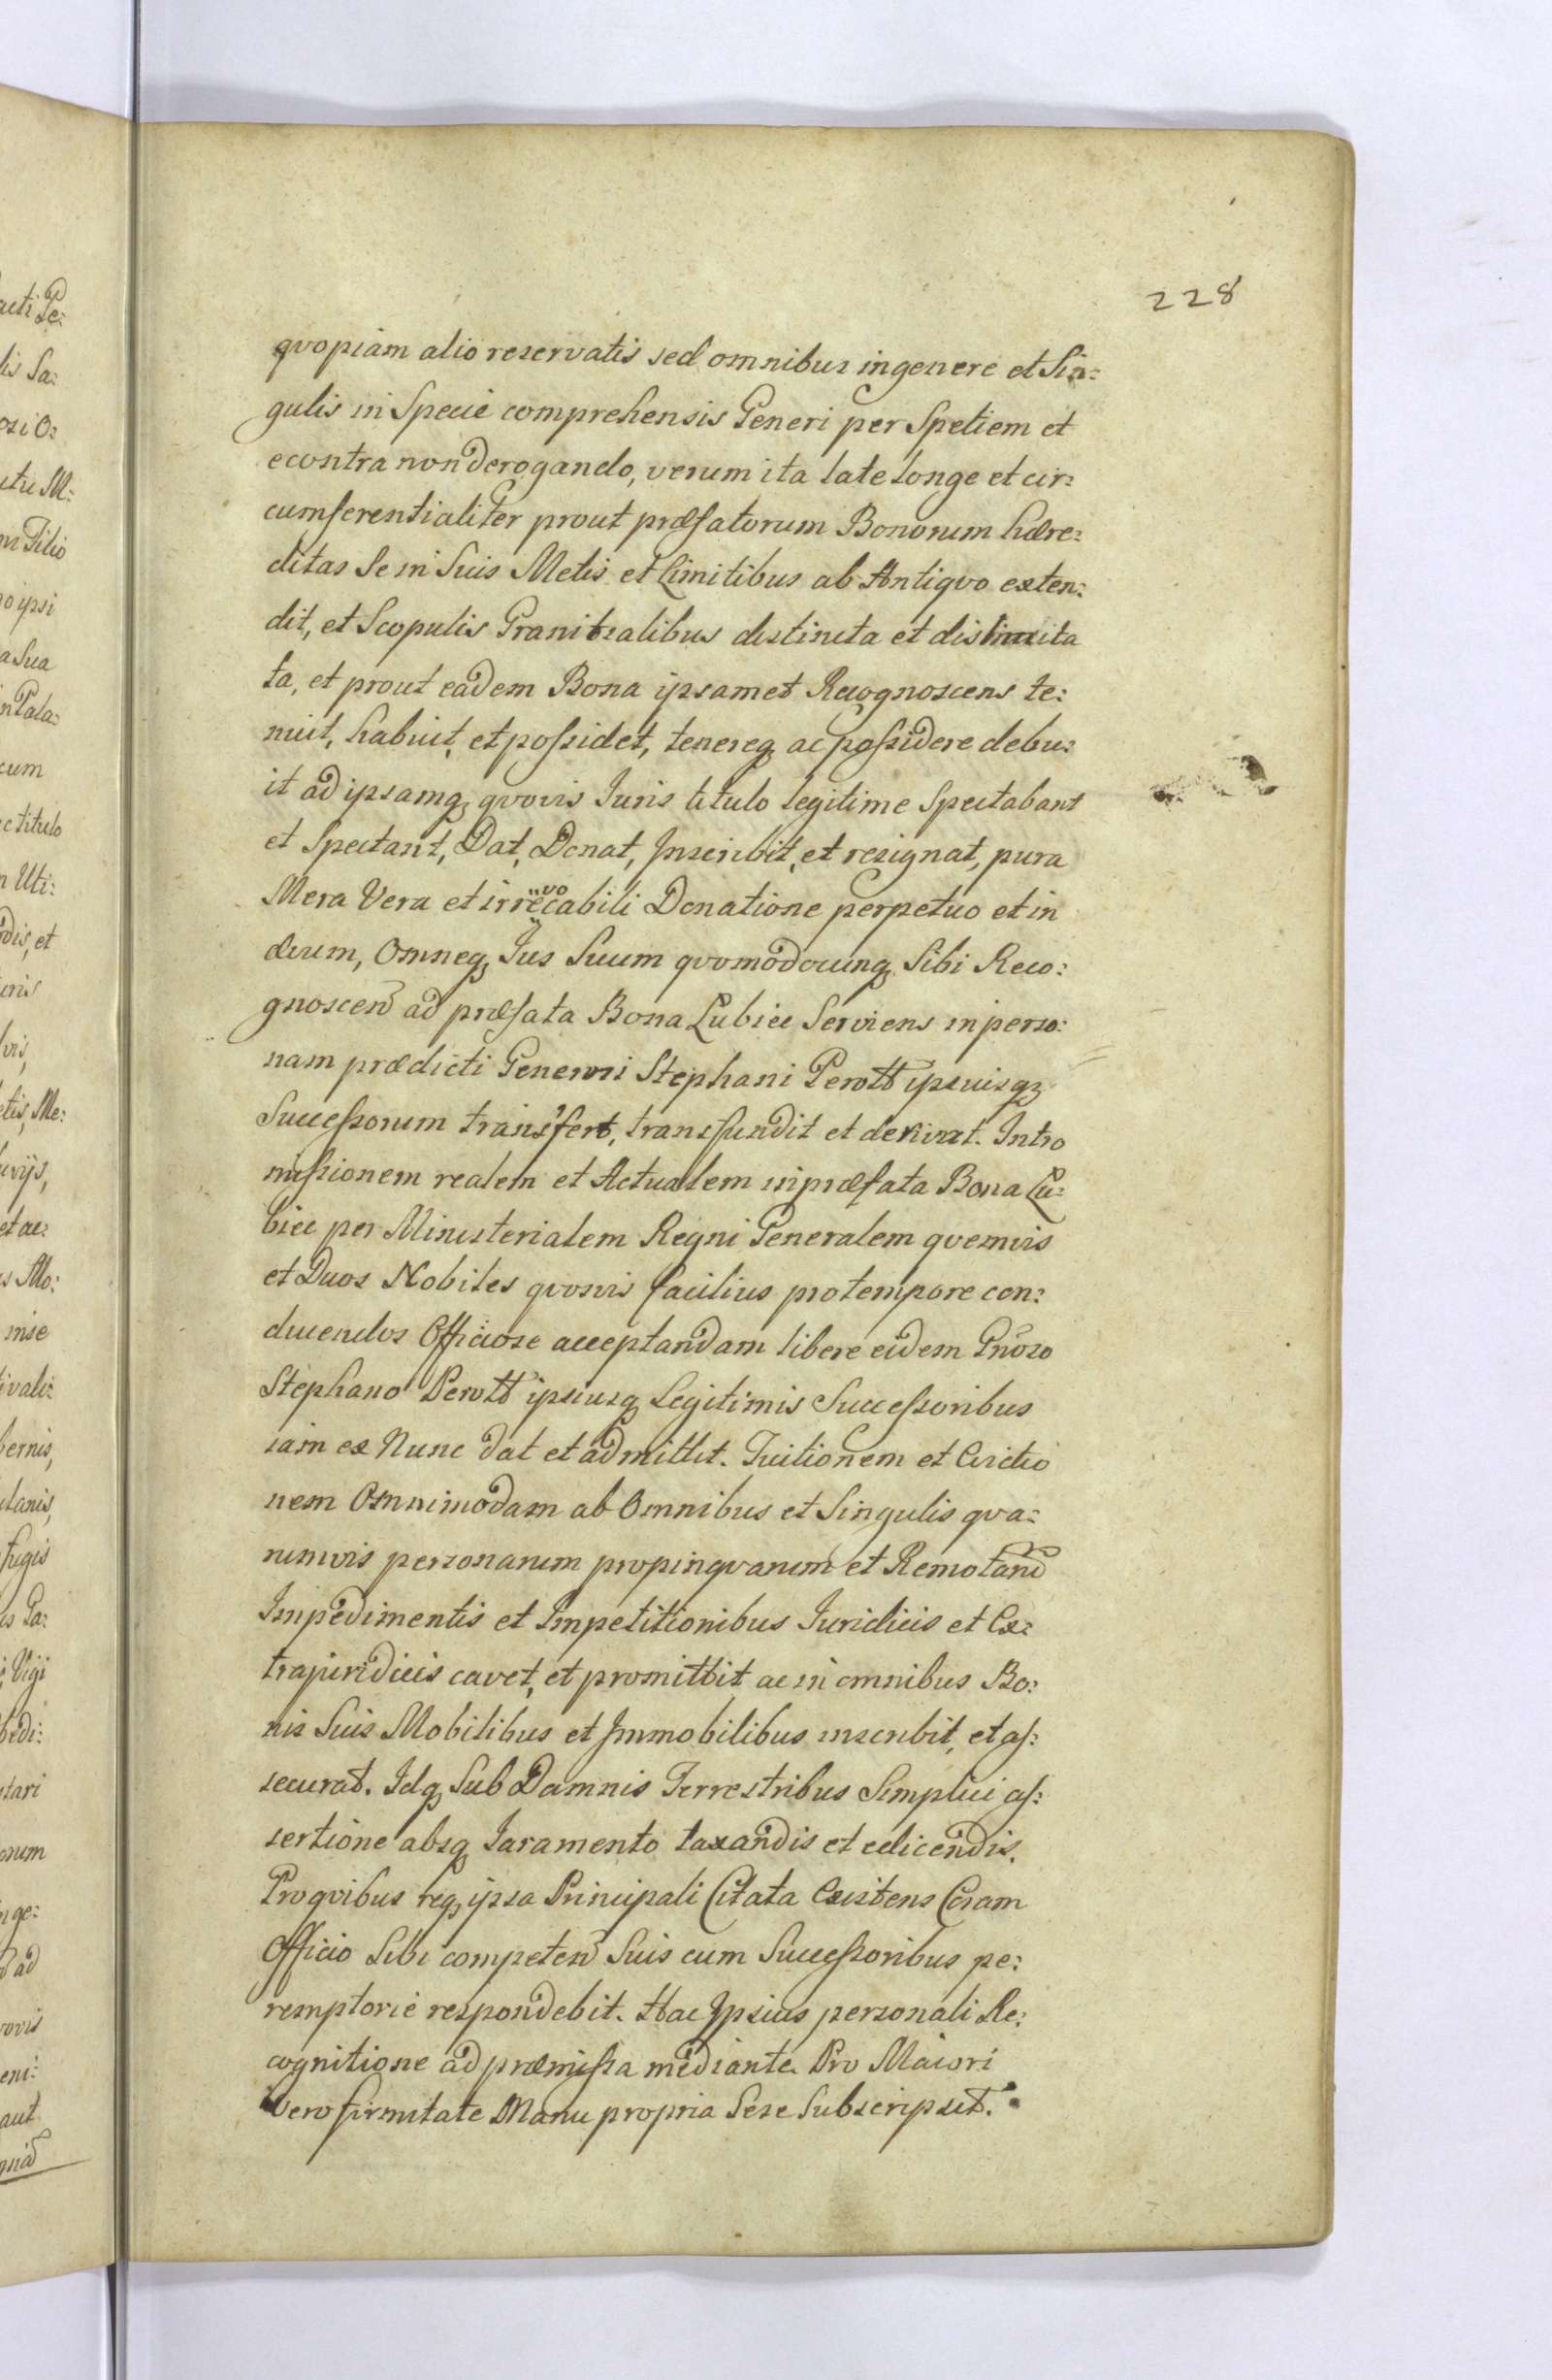 228
qvopiam alio reservatis sed omnibus in genere et Sin:
gulis in Specie comprehensis Generi per Spetiem et
econtra non derogando, verum ita late longe et cir:
cumferentialiter prout præfatorum Bonorum hære:
ditas Se in Suis Metis et Limitibus ab Antiqvo exten:
dit, et Scopulis Granitialibus distincta et dislimita
ta, et prout eadem Bona ipsamet Recognoscens te:
nuit, habuit, et possidet, tenereq, ac possidere debu:
it ad ipsamq, qvovis Iuris titulo legitime Spectabant
et Spectant, Dat, Donat, Inscribit, et resignat, pura
Mera Vera et irrevocabili Donatione perpetuo et in
ævum, Omneq, Ius Suum qvomodocunq, Sibi Reco:
gnoscen ad præfata Bona Lubiec Serviens in perso:
nam prædicti Generosi Stephani Perott ipsiusq,
Successorum transfert, transfundit et derivat. Intro
missionem realem et Actualem in præfata Bona Lu:
biec per Ministerialem Regni Generalem qvemvis
et Duos Nobiles qvosvis facilius pro tempore con:
ducendos Officiose acceptandam libere eidem Gnoso
Stephano Perott ipsiusq, Legitimis Successoribus
iam ex Nunc dat et admittit. Tuitionem et Evictio
nem Omnimodam ab Omnibus et Singulis qva:
rumvis personarum propinqvarum et Remotaru
Impedimentis et Impetitionibus Iuridicis et Ex:
trajuridicis cavet, et promittit ac in omnibus Bo:
nis Suis Mobilibus et Immobilibus inscribit, et as:
securat. Idq, Sub Damnis Terrestribus Simplici as:
sertione absq, Iaramento taxandis et edicendis.
Pro qvibus req, ipsa Principali Citata Existens Coram
Officio Sibi competen Suis cum Successoribus pe:
remptorie respondebit. Hac Ipsius personali Re:
cognitione ad præmissa mediante. Pro Maiori
Vero firmitate Manu propria Sese Subscripsit.